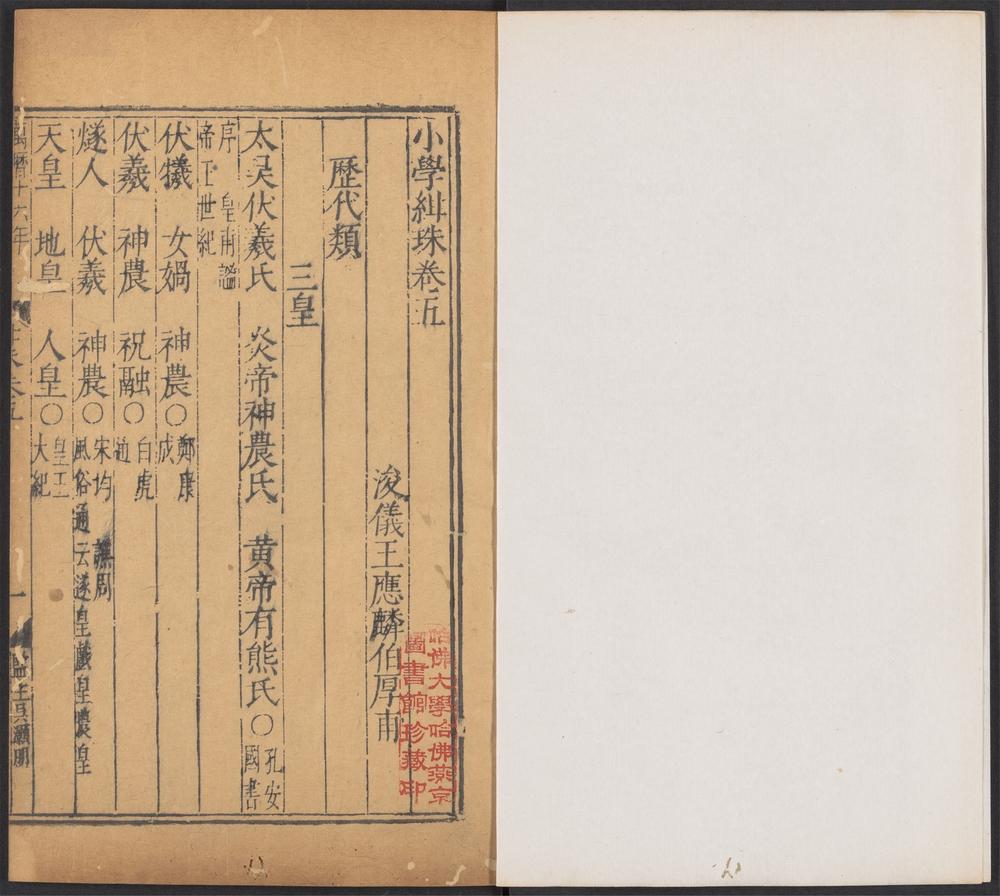 小學紺珠卷五
浚儀王應麟伯厚甫
歷代類
三皇
太昊伏羲氏 炎帝神農氏 黄帝有熊氏○孔安國書
序 皇甫謐帝王世紀
伏犧 女媧 神農○鄭康成
伏羲 神農 祝融○白虎通
燧人 伏羲 神農○宋均 譙周 風俗通云遂皇戲皇農皇
天皇 地皇 人皇○皇王大紀
萬曆十六年
一
哈佛大學哈佛燕京
圖書館珍藏印